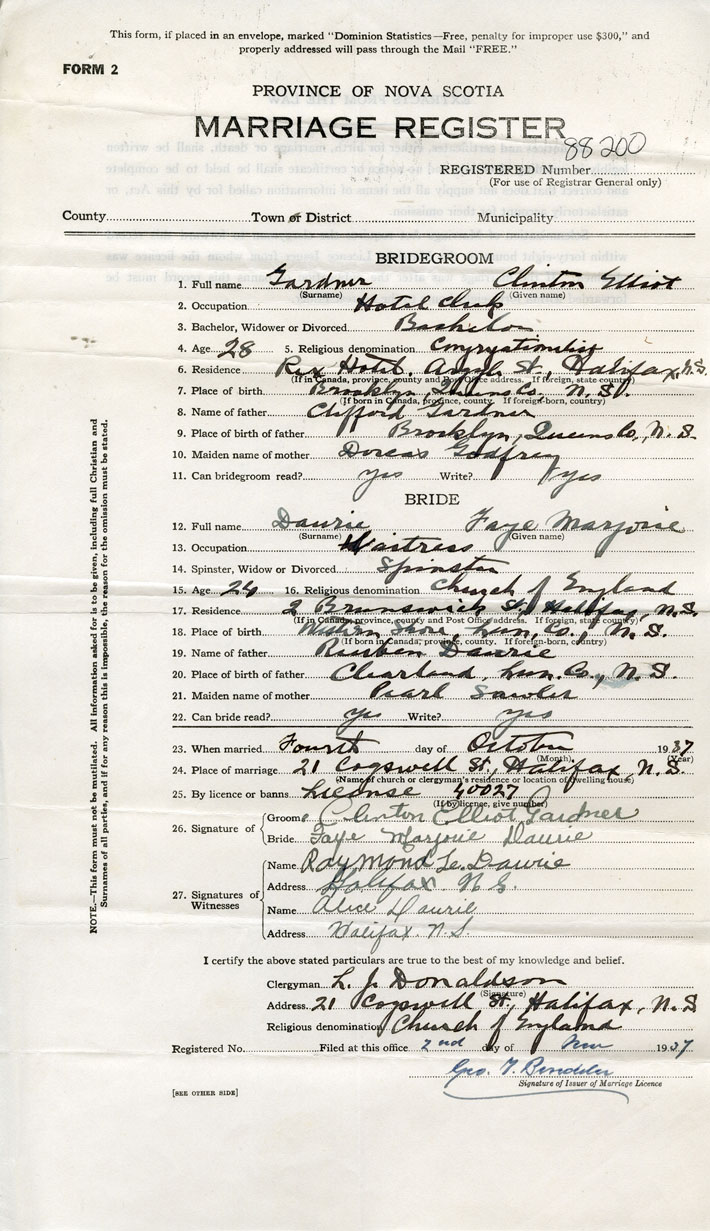 This form, if placed in an envelope, marked "Dominion Statistics—Free, penalty for improper use $300," and
properly addressed will pass through the Mail "FREE."
FORM 2
PROVINCE OF NOVA SCOTIA
MARRIAGE REGISTER
88200
REGISTERED Number
(For use of Registrar General only)
County Town or District Municipality
BRIDEGROOM
1. Full name Gardner Clinton Elliot
(Surname) (Given name)
2. Occupation Hotel
3. Bachelor, Widower or Divorced Bachelor
4. Age 28 5. Religious denomination Congregationalist
6. Residence Rex Hotel, Argyle St., Halifax, N.S.
(If in Canada, province, county and Post Office address. If foreign, state country)
7. Place of birth Brooklyn, Queens Co. N.S.
(If born in Canada, province, county. If foreign-born, country)
8. Name of father Clifford Gardner
9. Place of birth of father Brooklyn, Queens Co, N.S.
10. Maiden name of mother Dorcas Godfrey
11. Can bridegroom read? yes Write? yes
BRIDE
12. Full name Daurie Faye Marjorie
(Surname) (Given name)
13. Occupation Waitress
14. Spinster, Widow or Divorced Spinster
15. Age 16. Religious denomination Church of England
17. Residence 2 Brunswick St. Halifax, N.S.
(If in Canada, province, county and Post Office address. If foreign, state country)
18. Place of birth Western Shore, Lun. Co., N.S.
(If born in Canada, province, county. If foreign-born, country)
19. Name of father Reuben Daurie
20. Place of birth of father Clearland, Lun. Co., N.S.
21. Maiden name of mother Pearl Sawler
22. Can bride read? yes Write? yes
23. When married Fourth day of October 1937
(Month) (Year)
24. Place of marriage 21 Cogswell St., Halifax, N.S.
(Name of church or clergyman's residence or location of dwelling house)
25. By licence or banns License 40027
(If by licence, give number)
26. Signature of
Groom Clinton Elliot Gardner
Bride Faye Marjorie Daurie
27. Signatures of Witnesses
Name Raymond Le. Daurie
Address Halifax N.S.
Name Alice Daurie
Address Halifax. N.S.
I certify the above stated particulars are true to the best of my knowledge and belief.
Clergyman L. J. Donaldson
(Signature)
Address 21 Cogswell St., Halifax, N.S
Religious denomination Church of England
Registered No. Filed at this office 2nd day of Nov 1937
Geo. T.
Signature of Issuer of Marriage Licence
[SEE OTHER SIDE]
NOTE.—This form must not be mutilated. All information asked for is to be given, including full Christian and
Surnames of all parties, and if for any reason this is impossible, the reason for the omission must be stated.